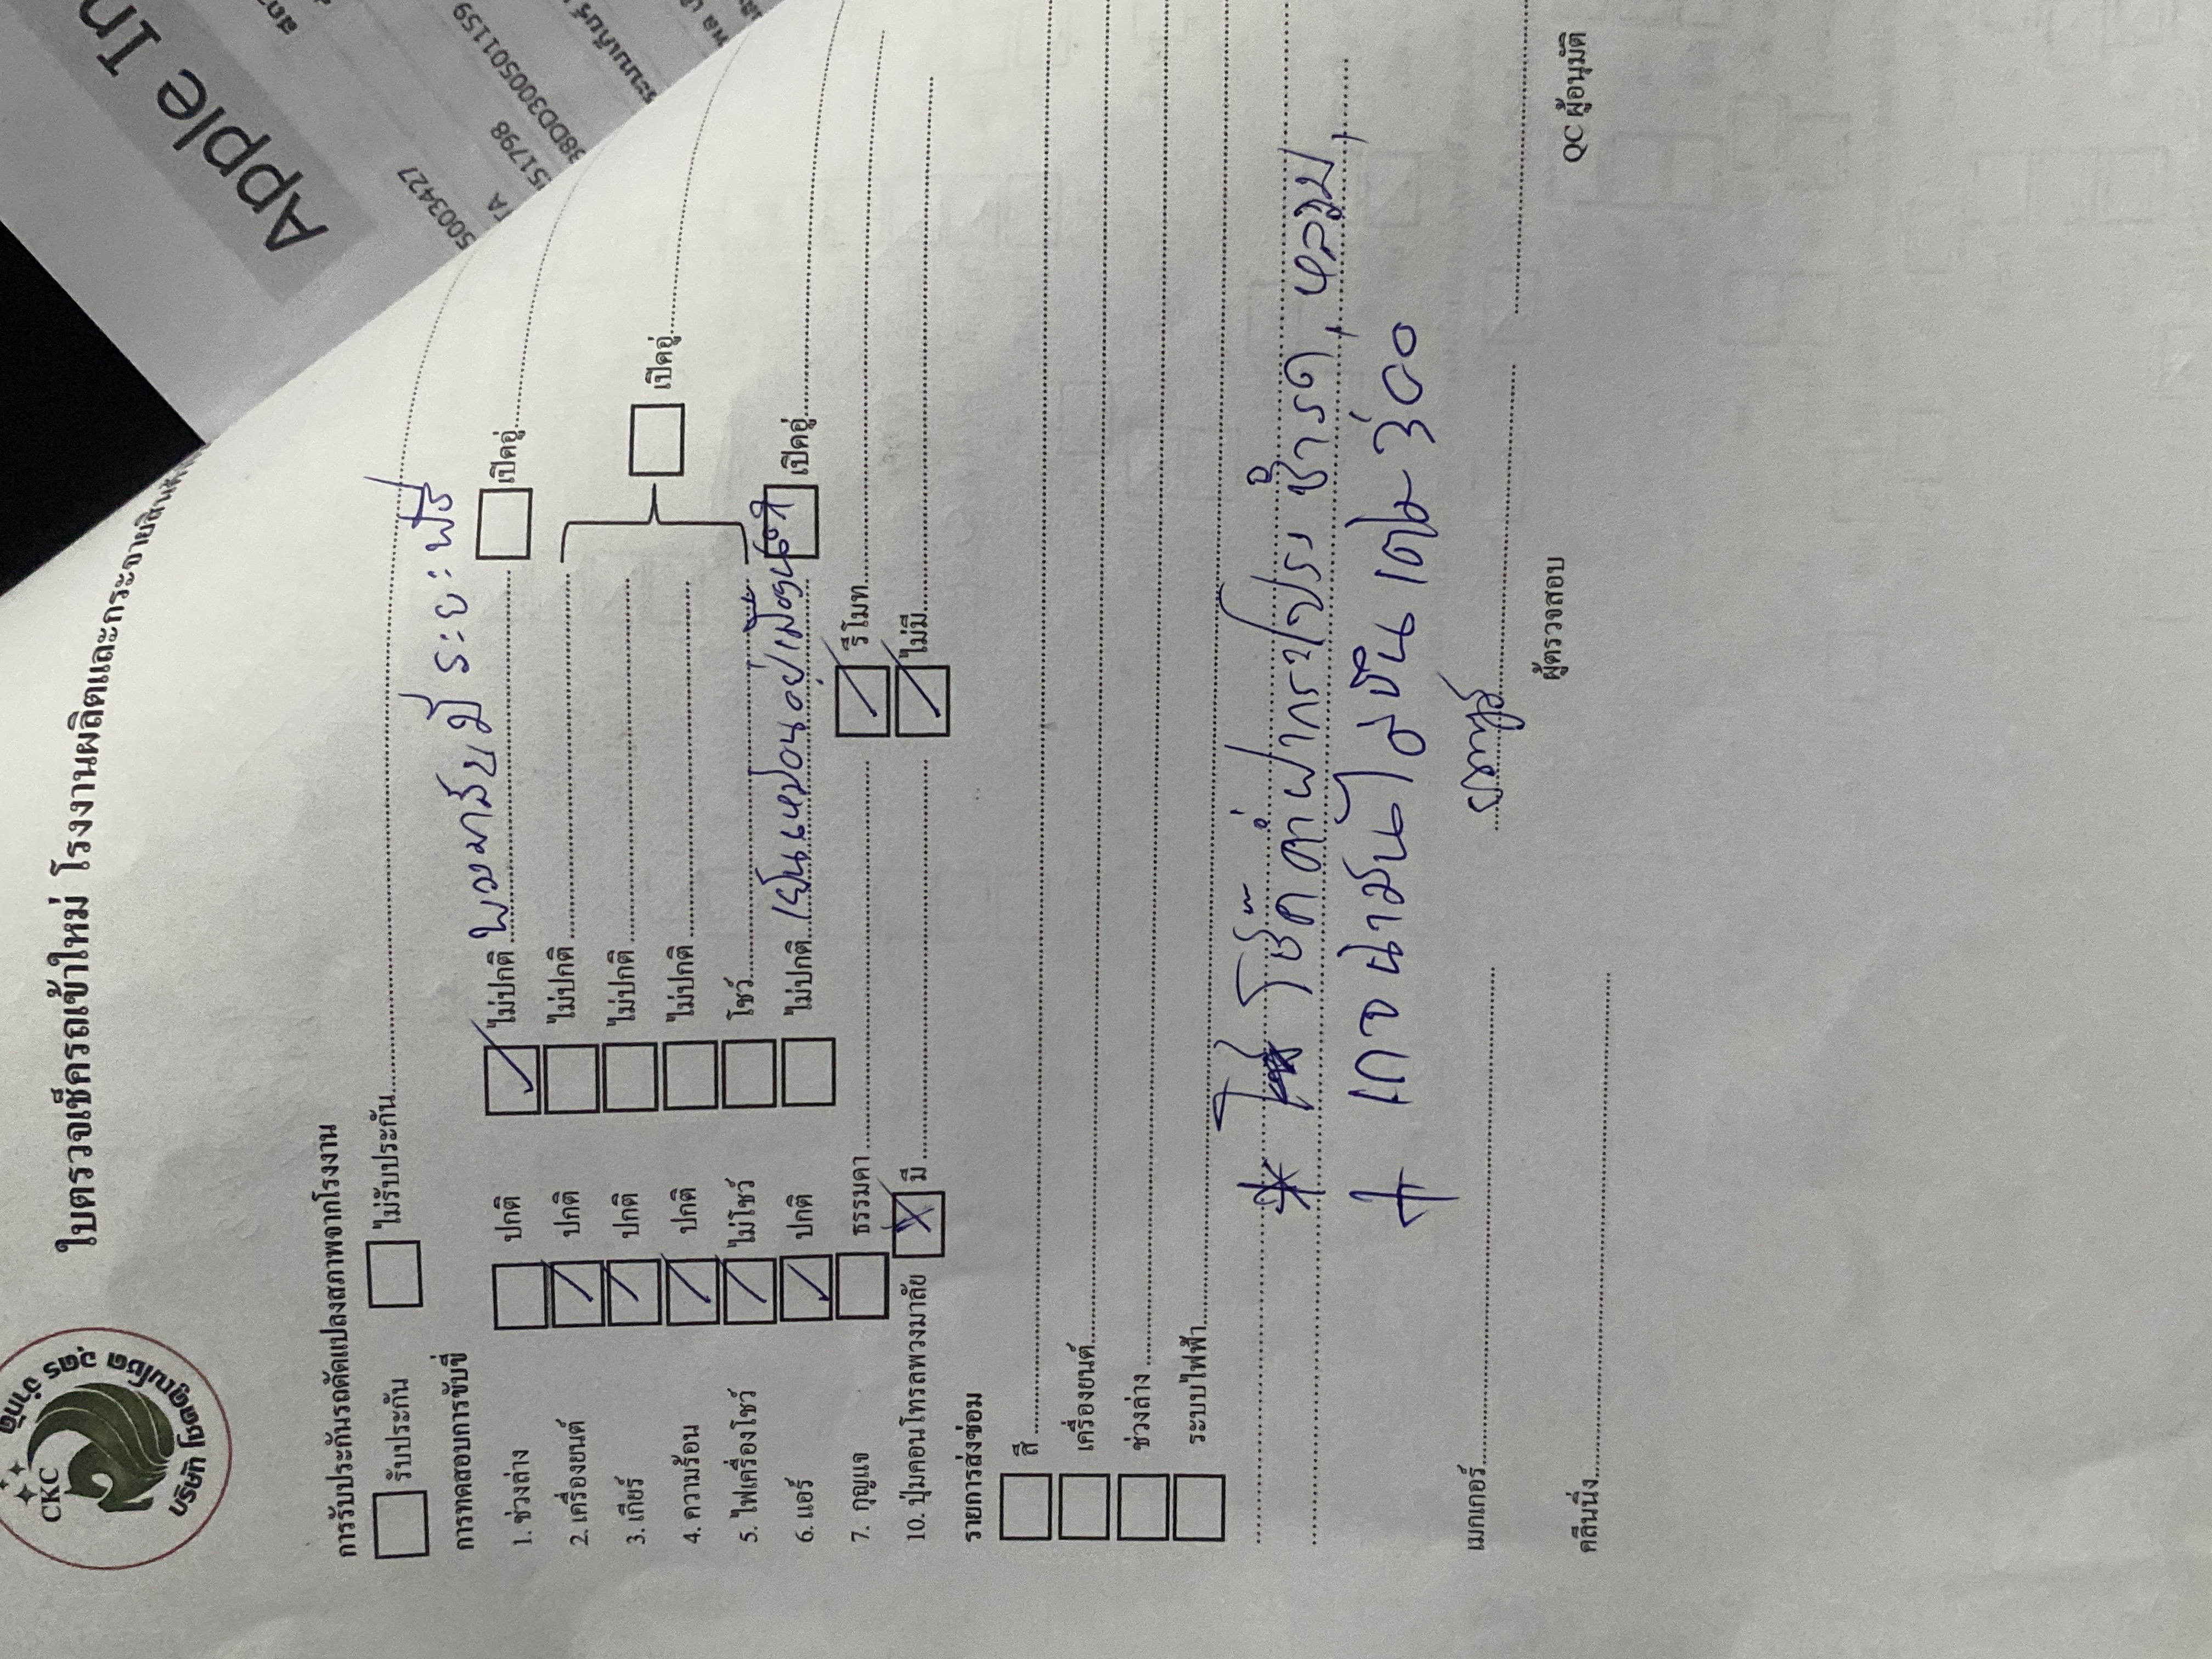 CKC
บริษัท โชคคูณโชค จูตร จำกัด
ใบตรวจเช็ครถเข้าใหม่ โรงงานผลิตและกระจายสินค้า
การรับประกันรถดัดแปลงสภาพจากโรงงาน
รับประกัน ไม่รับประกัน
การทดสอบการขับขี่
พวงมาลัยมีระยะฟรี
1. ช่วงล่าง ปกติ ไม่ปกติ เปิดอู่
2. เครื่องยนต์ ปกติ ไม่ปกติ
3. เกียร์ ปกติ ไม่ปกติ เปิดอู่
4. ความร้อน ปกติ ไม่ปกติ
5. ไฟเครื่องโชว์ ไม่โชว์ โชว์
6. แอร์ ปกติ ไม่ปกติ เปิดอู่
7. กุญแจ ธรรมดา รีโมท
10. ปุ่มคอนโทรลพวงมาลัย มี ไม่มี
รายการส่งซ่อม
สี
เครื่องยนต์
ช่วงล่าง
ระบบไฟฟ้า
* โช๊คค้ำฝากระโปรง ชำรุด, หลวม,
+ เกจน้ำมันไม่ขึ้น
เมกเกอร์ ผู้ตรวจสอบ QC ผู้อนุมัติ
คลีนนิ่ง
Apple In
5003427
51798
38DD3000501159